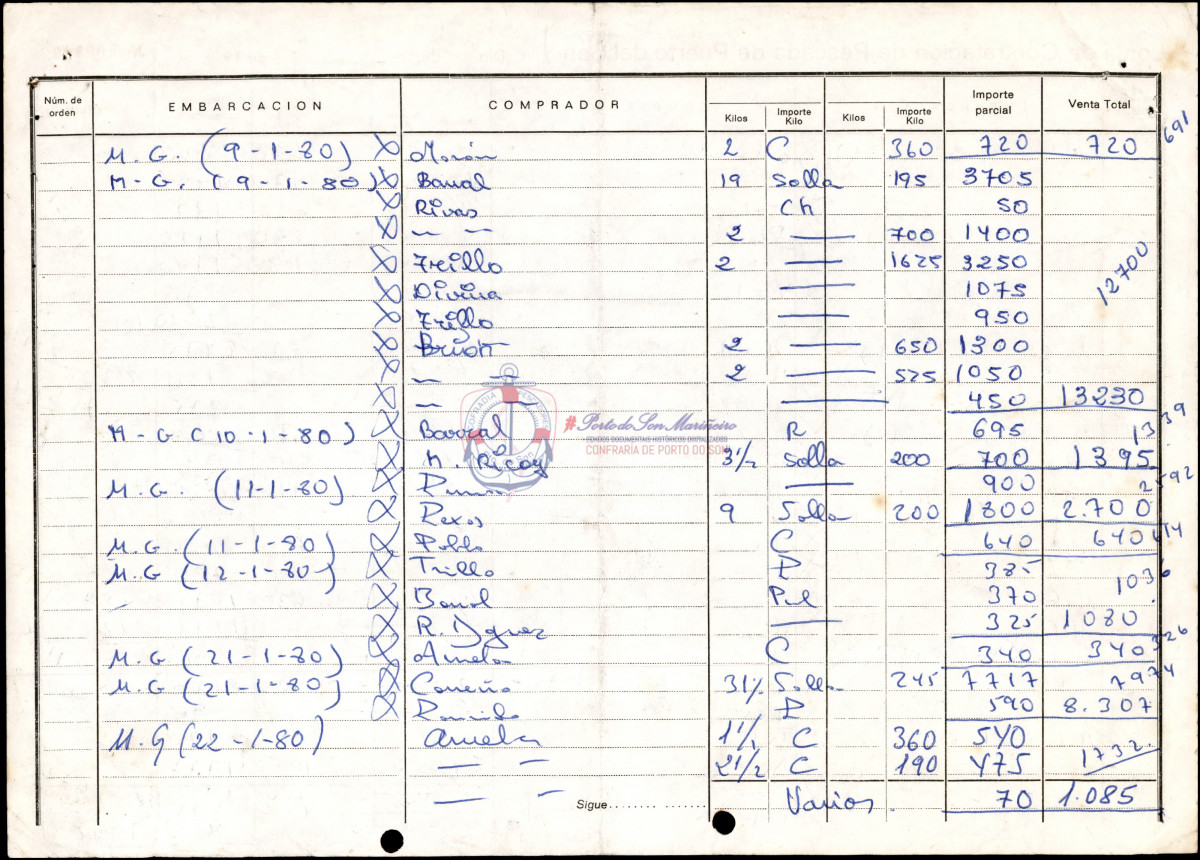 Núm. de orden EMBARCACION COMPRADOR Kilos Importe Kilo Kilos Importe Kilo Importe parcial Venta Total
M. G. (9-1-80) X Morón 2 C 360 720 720 691
M-G. (9-1-80) X Barral 19 Solla 195 3705
X Rivas Ch 50
X — — 2 — 700 1400
X Trillo 2 — 1625 3250 12700
X Divina — 1075
X Trillo — 950
X Brión 2 — 650 1300
X — — 2 — 525 1050
X — — — 450 13230
M-G (10-1-80) X Barral R 695 1339
X M. Ricoy 3 1/2 Solla 200 700 1395
M. G. (11-1-80) X — 900 2592
X Rexos 9 Solla 200 1800 2.700
M. G. (11-1-80) X Poblo C 640 640 614
M. G (12-1-80) X Trillo P 385
X Barral Pul 370 1036
X R. Dguez — 325 1080
M. G (21-1-80) X Amelia C 340 340 326
M. G (21-1-80) X Carreño 31 1/2 Solla 245 7717 7974
X P 590 8.307
M. G (22-1-80) Amelia 1 1/2 C 360 540
— — 2 1/2 C 190 475 1732.
— — Sigue Varios 70 1.085
COFRADIA PESCADORES
Son
#Porto do Son Mariñeiro
FONDOS DOCUMENTAIS HISTÓRICOS DIGITALIZADOS
CONFRARIA DE PORTO DO SON